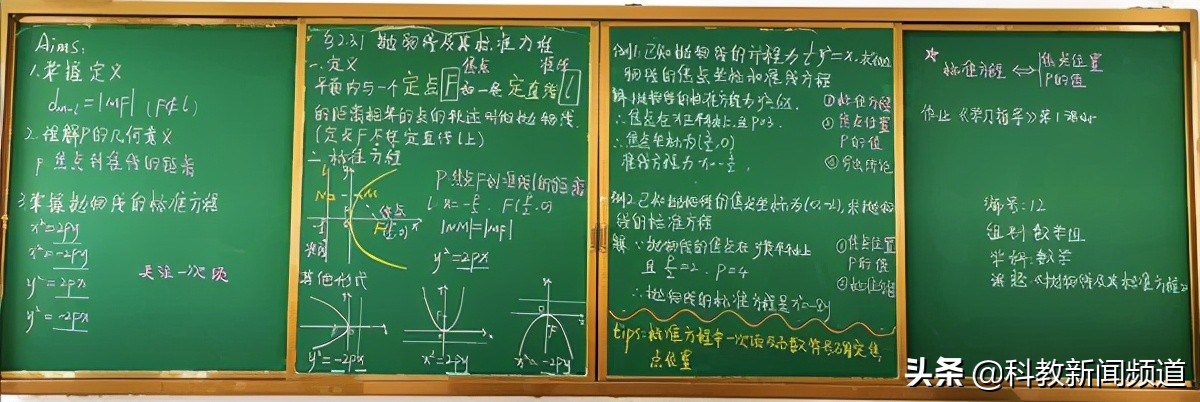 Aims:
1.掌握定义
d = |MF| (F∉l)
2.理解P的几何意义
P 焦点到准线的距离
3.掌握抛物线的标准方程
x²=2py
x²=-2py
y²=2px
y²=-2px
关注一次项
§2.3.1 抛物线及其标准方程
一.定义
焦点 准线
平面内与一个定点F和一条定直线l
的距离相等的点的轨迹叫做抛物线.
(定点F不在定直线l上)
二.标准方程
P:焦点F到准线l的距离
l: x=-p/2. F(p/2,0)
|MN|=|MF|
y²=2px
焦点
F(p/2,0)
准线
其他形式
y²=-2px
x²=2py
x²=-2py
例1.已知抛物线的方程为 y²=x.求抛
物线的焦点坐标和准线方程
解:抛物线的标准方程为y²=6x.
∴焦点在x正半轴上且P=3.
∴焦点坐标为(3/2,0)
准线方程为x=-3/2.
①标准方程
②焦点位置
P的值
③写出结论
例2.已知抛物线的焦点坐标为(0,-2),求抛物
线的标准方程
解:∵抛物线的焦点在y负半轴上
且 p/2=2. P=4
∴抛物线的标准方程是x²=-8y
①焦点位置
P的值
②标准方程
tips:标准方程中一次项及系数符号确定焦
点位置
标准方程⇔
焦点位置
P的值
作业《学习指导》第1课时
编号:12
组别:数学组
学科:数学
课题:《抛物线及其标准方程》
头条 @科教新闻频道